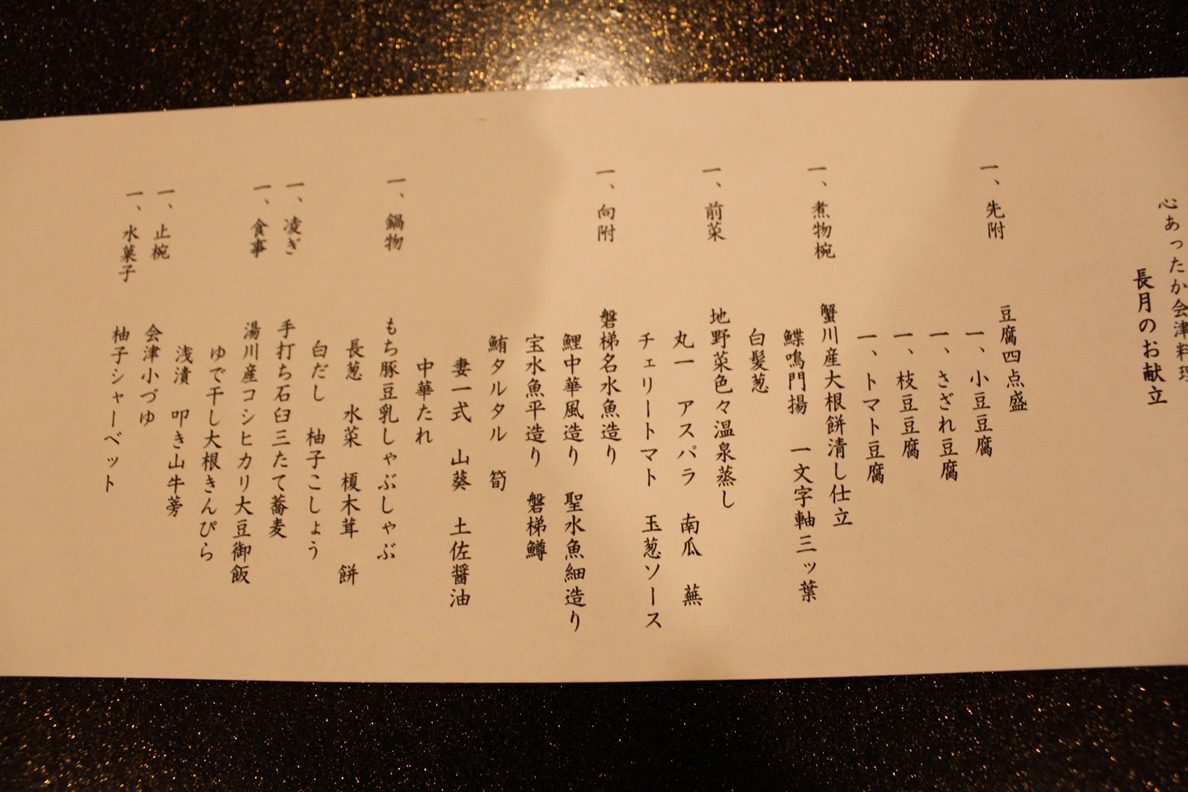 心あったか会津料理
長月のお献立
一、先附 豆腐四点盛
一、小豆豆腐
一、さざれ豆腐
一、枝豆豆腐
一、トマト豆腐
一、煮物椀 蟹川産大根餅清し仕立
鰈鳴門揚 一文字軸三ッ葉
白髪葱
一、前菜 地野菜色々温泉蒸し
丸一 アスパラ 南瓜 蕪
チェリートマト 玉葱ソース
一、向附 磐梯名水魚造り
鯉中華風造り 聖水魚細造り
宝水魚平造り 磐梯鱒
鮪タルタル 筍
妻一式 山葵 土佐醤油
中華たれ
一、鍋物 もち豚豆乳しゃぶしゃぶ
長葱 水菜 榎木茸 餅
白だし 柚子こしょう
一、凌ぎ 手打ち石臼三たて蕎麦
一、食事 湯川産コシヒカリ大豆御飯
ゆで干し大根きんぴら
浅漬 叩き山牛蒡
一、止椀 会津小づゆ
一、水菓子 柚子シャーベット